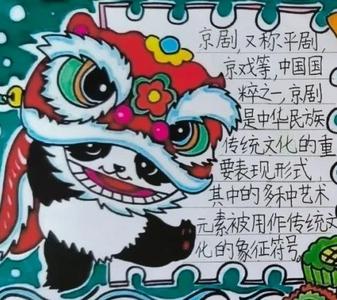 京剧,又称平剧,
京戏等,中国国
粹之一,京剧
是中华民族
传统文化的重
要表现形式,
其中的多种艺术
元素被用作传统文
化的象征符号。